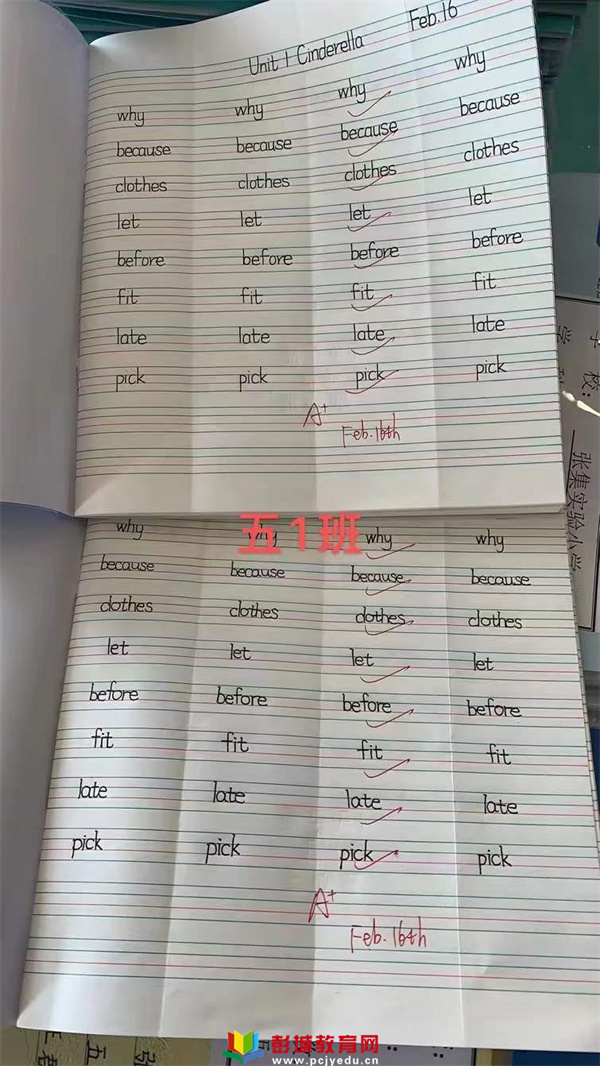 Unit 1 Cinderella Feb.16
why why why why
because because because because
clothes clothes clothes clothes
let let let let
before before before before
fit fit fit fit
late late late late
pick pick pick pick
A+
Feb.16th
张集实验小学
五1班
why why why why
because because because because
clothes clothes clothes clothes
let let let let
before before before before
fit fit fit fit
late late late late
pick pick pick pick
A+
Feb.16th
彭城教育网
www.pcjyedu.cn